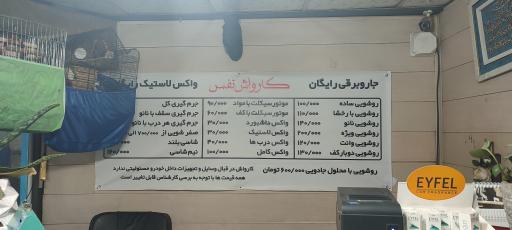 جاروبرقی رایگان
کارواش نفیس
واکس لاستیک رایگان
روشویی ساده ۱۰۰/۰۰۰
روشویی با رخشا ۱۱۰/۰۰۰
روشویی نانو ۱۴۰/۰۰۰
روشویی ویژه ۲۰۰/۰۰۰
روشویی وانت ۱۲۰/۰۰۰
روشویی دوبار کف ۱۳۰/۰۰۰
موتورسیکلت با مواد ۹۰/۰۰۰
موتورسیکلت با کف ۶۰/۰۰۰
واکس داشبورد ۳۰/۰۰۰
واکس لاستیک ۳۰/۰۰۰
واکس درب ها ۴۰/۰۰۰
واکس کامل ۱۰۰/۰۰۰
جرم گیری کل
جرم گیری سقف با نانو
جرم گیری هر درب با نانو
صفر شویی از ۷۰۰/۰۰۰ الی
شاسی بلند
نیم شاسی
روشویی با محلول جادویی ۵۰۰/۰۰۰ تومان
کارواش در قبال وسایل و تجهیزات داخل خودرو مسئولیتی ندارد
همه قیمت ها با توجه به بررسی کارشناس قابل تغییر است
EYFEL
CAR FRAGRANCE